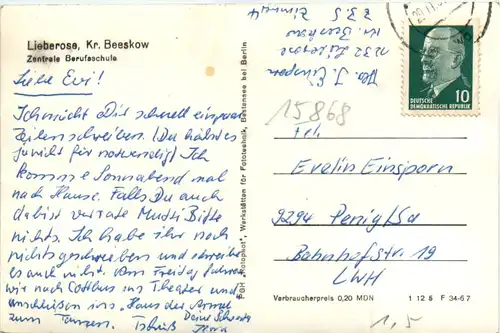 Lieberose, Kr. Beeskow
Zentrale Berufsschule
Liebe Evi!
Ich möcht Dir schnell ein paar
Zeilen schreiben. (Du hälst es
ja nicht für notwendig) Ich
komme Sonnabend mal
nach Hause. Falls Du auch
da bist verrate Mutti Bitte
nichts. Ich habe ihr noch
nichts geschrieben und schreibe
es auch nicht. Am Freitag fahren
wir nach Cottbus ins Theater und
anschließen ins "Haus der Armee"
zum Tanzen. Tschüß Deine Schwester
PGH „Rotophot", Werkstätten für Fototechnik, Bestensee bei Berlin
Abs. J. Einsporn
1232 Lieberose
Kr. Beeskow
ZBS
DEUTSCHE
DEMOKRATISCHE REPUBLIK
10
15868
Frl.
Evelin Einsporn
9294 Penig/Sa
Bahnhofstraße 19
LWH
Verbraucherpreis 0,20 MDN
1 12 5 F 34-67
1,5